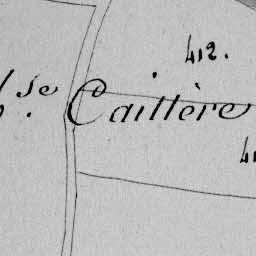 412.
se Caillère